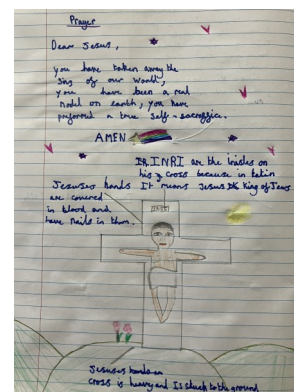 Prayer
Dear Jesus,
you have taken away the
sins of our world,
you have been a real
model on earth, you have
preformed a true self-sacrafice.
AMEN
INRI are the on
his cross because in latin
It means Jesus king of Jews
Jesuses hands
are covered
in blood and
have nails in them.
INRI
Jesuses hands on
cross is heavy and Is stuck to the ground